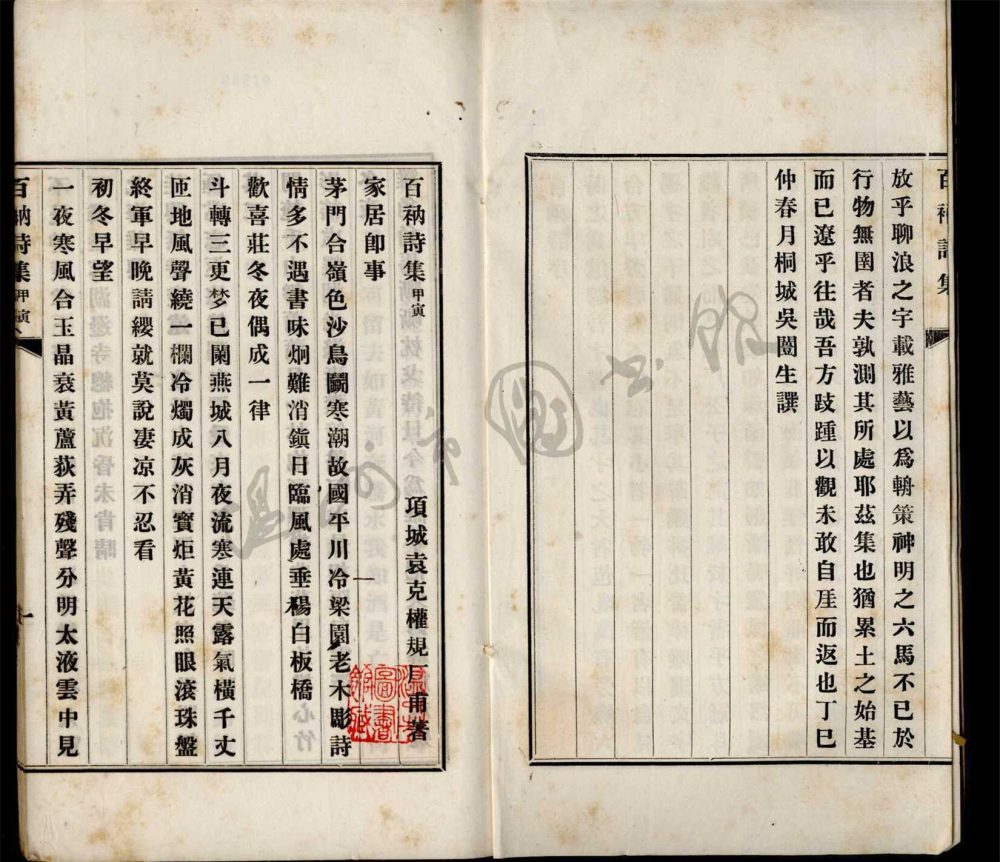 百衲詩集
放乎聊浪之宇載雅藝以爲輈策神明之六馬不已於
行物無圉者夫孰測其所處耶茲集也猶累土之始基
而已遼乎往哉吾方跂踵以觀未敢自厓而返也丁巳
仲春月桐城吳闓生譔
百衲詩集甲寅
項城袁克權規厂甫著
家居卽事
茅門合嶺色沙鳥鬭寒潮故國平川冷梁園老木彫詩
情多不遇書味炯難消鎭日臨風處垂楊白板橋
歡喜莊冬夜偶成一律
斗轉三更梦已闌燕城八月夜流寒連天露氣橫千丈
匝地風聲繞一欄冷燭成灰消寶炬黃花照眼滾珠盤
終軍早晚請纓就莫說凄凉不忍看
初冬早望
一夜寒風合玉晶衰黃蘆荻弄殘聲分明太液雲中見
百衲詩集 甲寅
一
溫州市圖書館
溫州圖書館藏